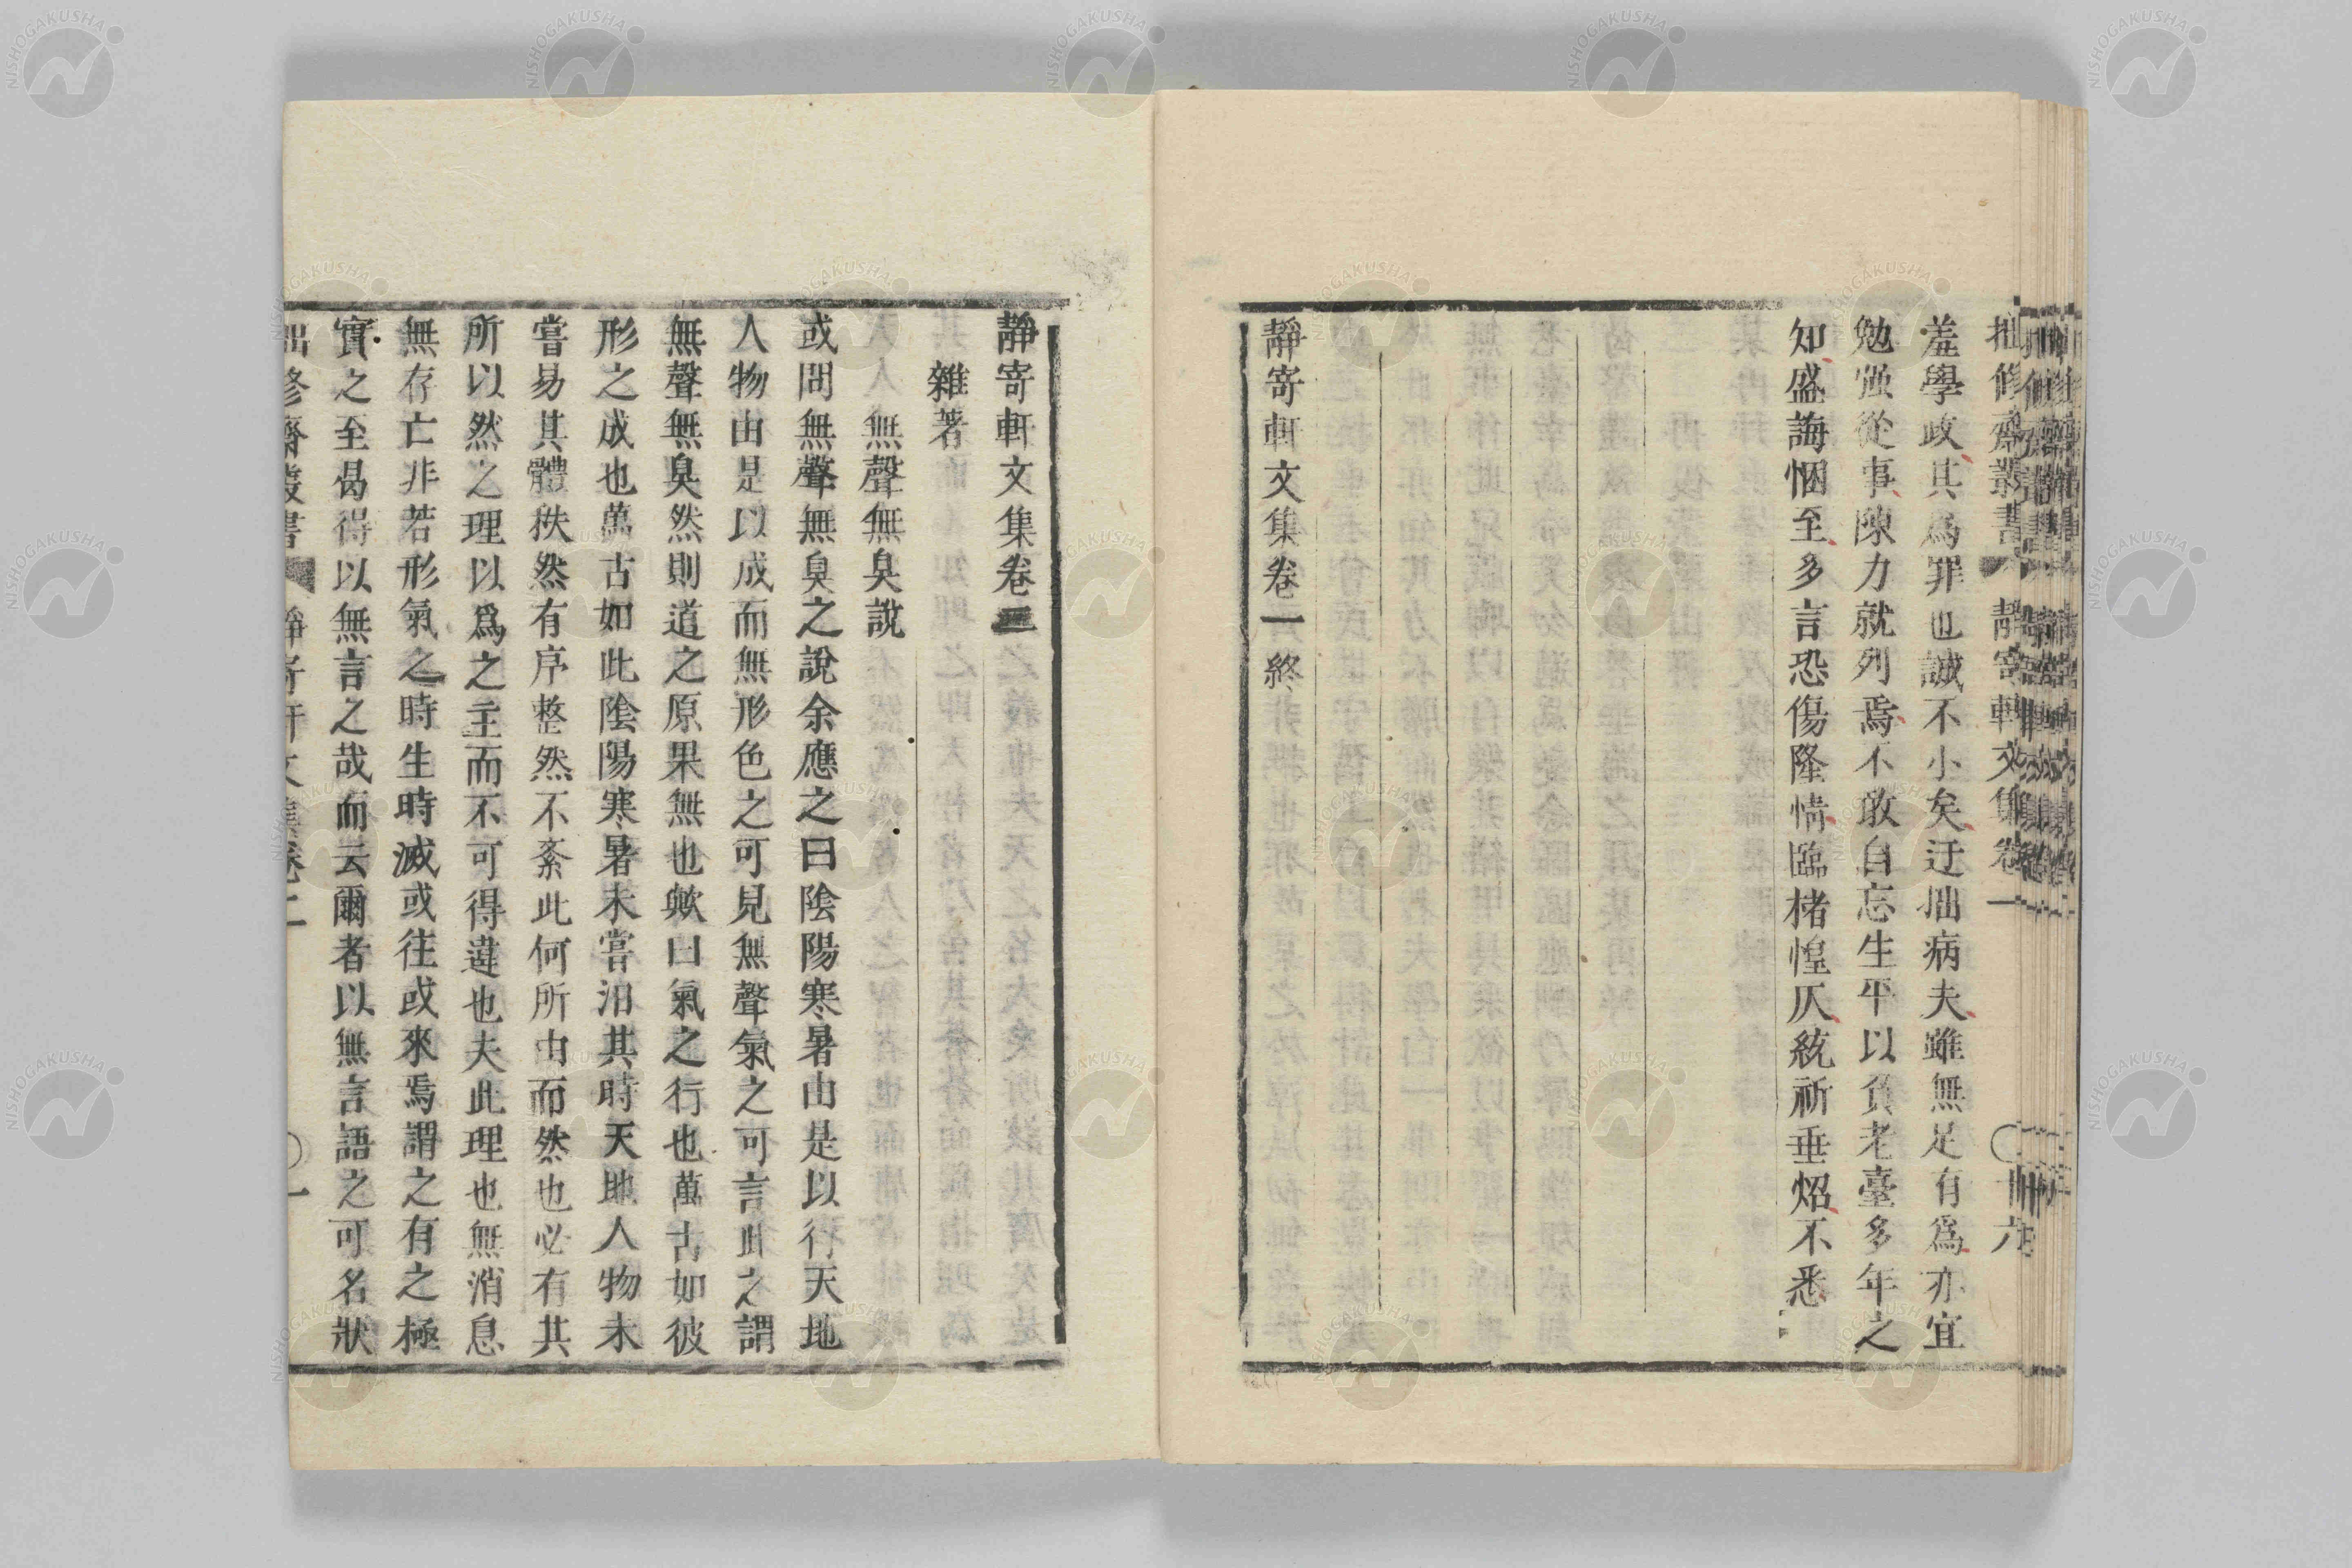 拙修齋叢書 靜寄軒文集卷一 〇卅六
羞學政其爲罪也誠不小矣迂拙病夫雖無足有爲亦宜
勉强從事陳力就列焉不敢自忘生平以負老臺多年之
知盛誨悃至多言恐傷隆情臨楮惶仄統祈垂炤不悉
靜寄軒文集卷一終
靜寄軒文集卷二
雜著
無聲無臭說
或問無聲無臭之說余應之曰陰陽寒暑由是以行天地
人物由是以成而無形色之可見無聲氣之可言此之謂
無聲無臭然則道之原果無也歟曰氣之行也萬古如彼
形之成也萬古如此陰陽寒暑未嘗汨其時天地人物未
嘗易其體秩然有序整然不紊此何所由而然也必有其
所以然之理以爲之主而不可得違也夫此理也無消息
無存亡非若形氣之時生時滅或往或來焉謂之有之極
實之至曷得以無言之哉而云爾者以無言語之可名狀
拙修齋叢書 靜寄軒文集卷二 〇一
NISHOGAKUSHA